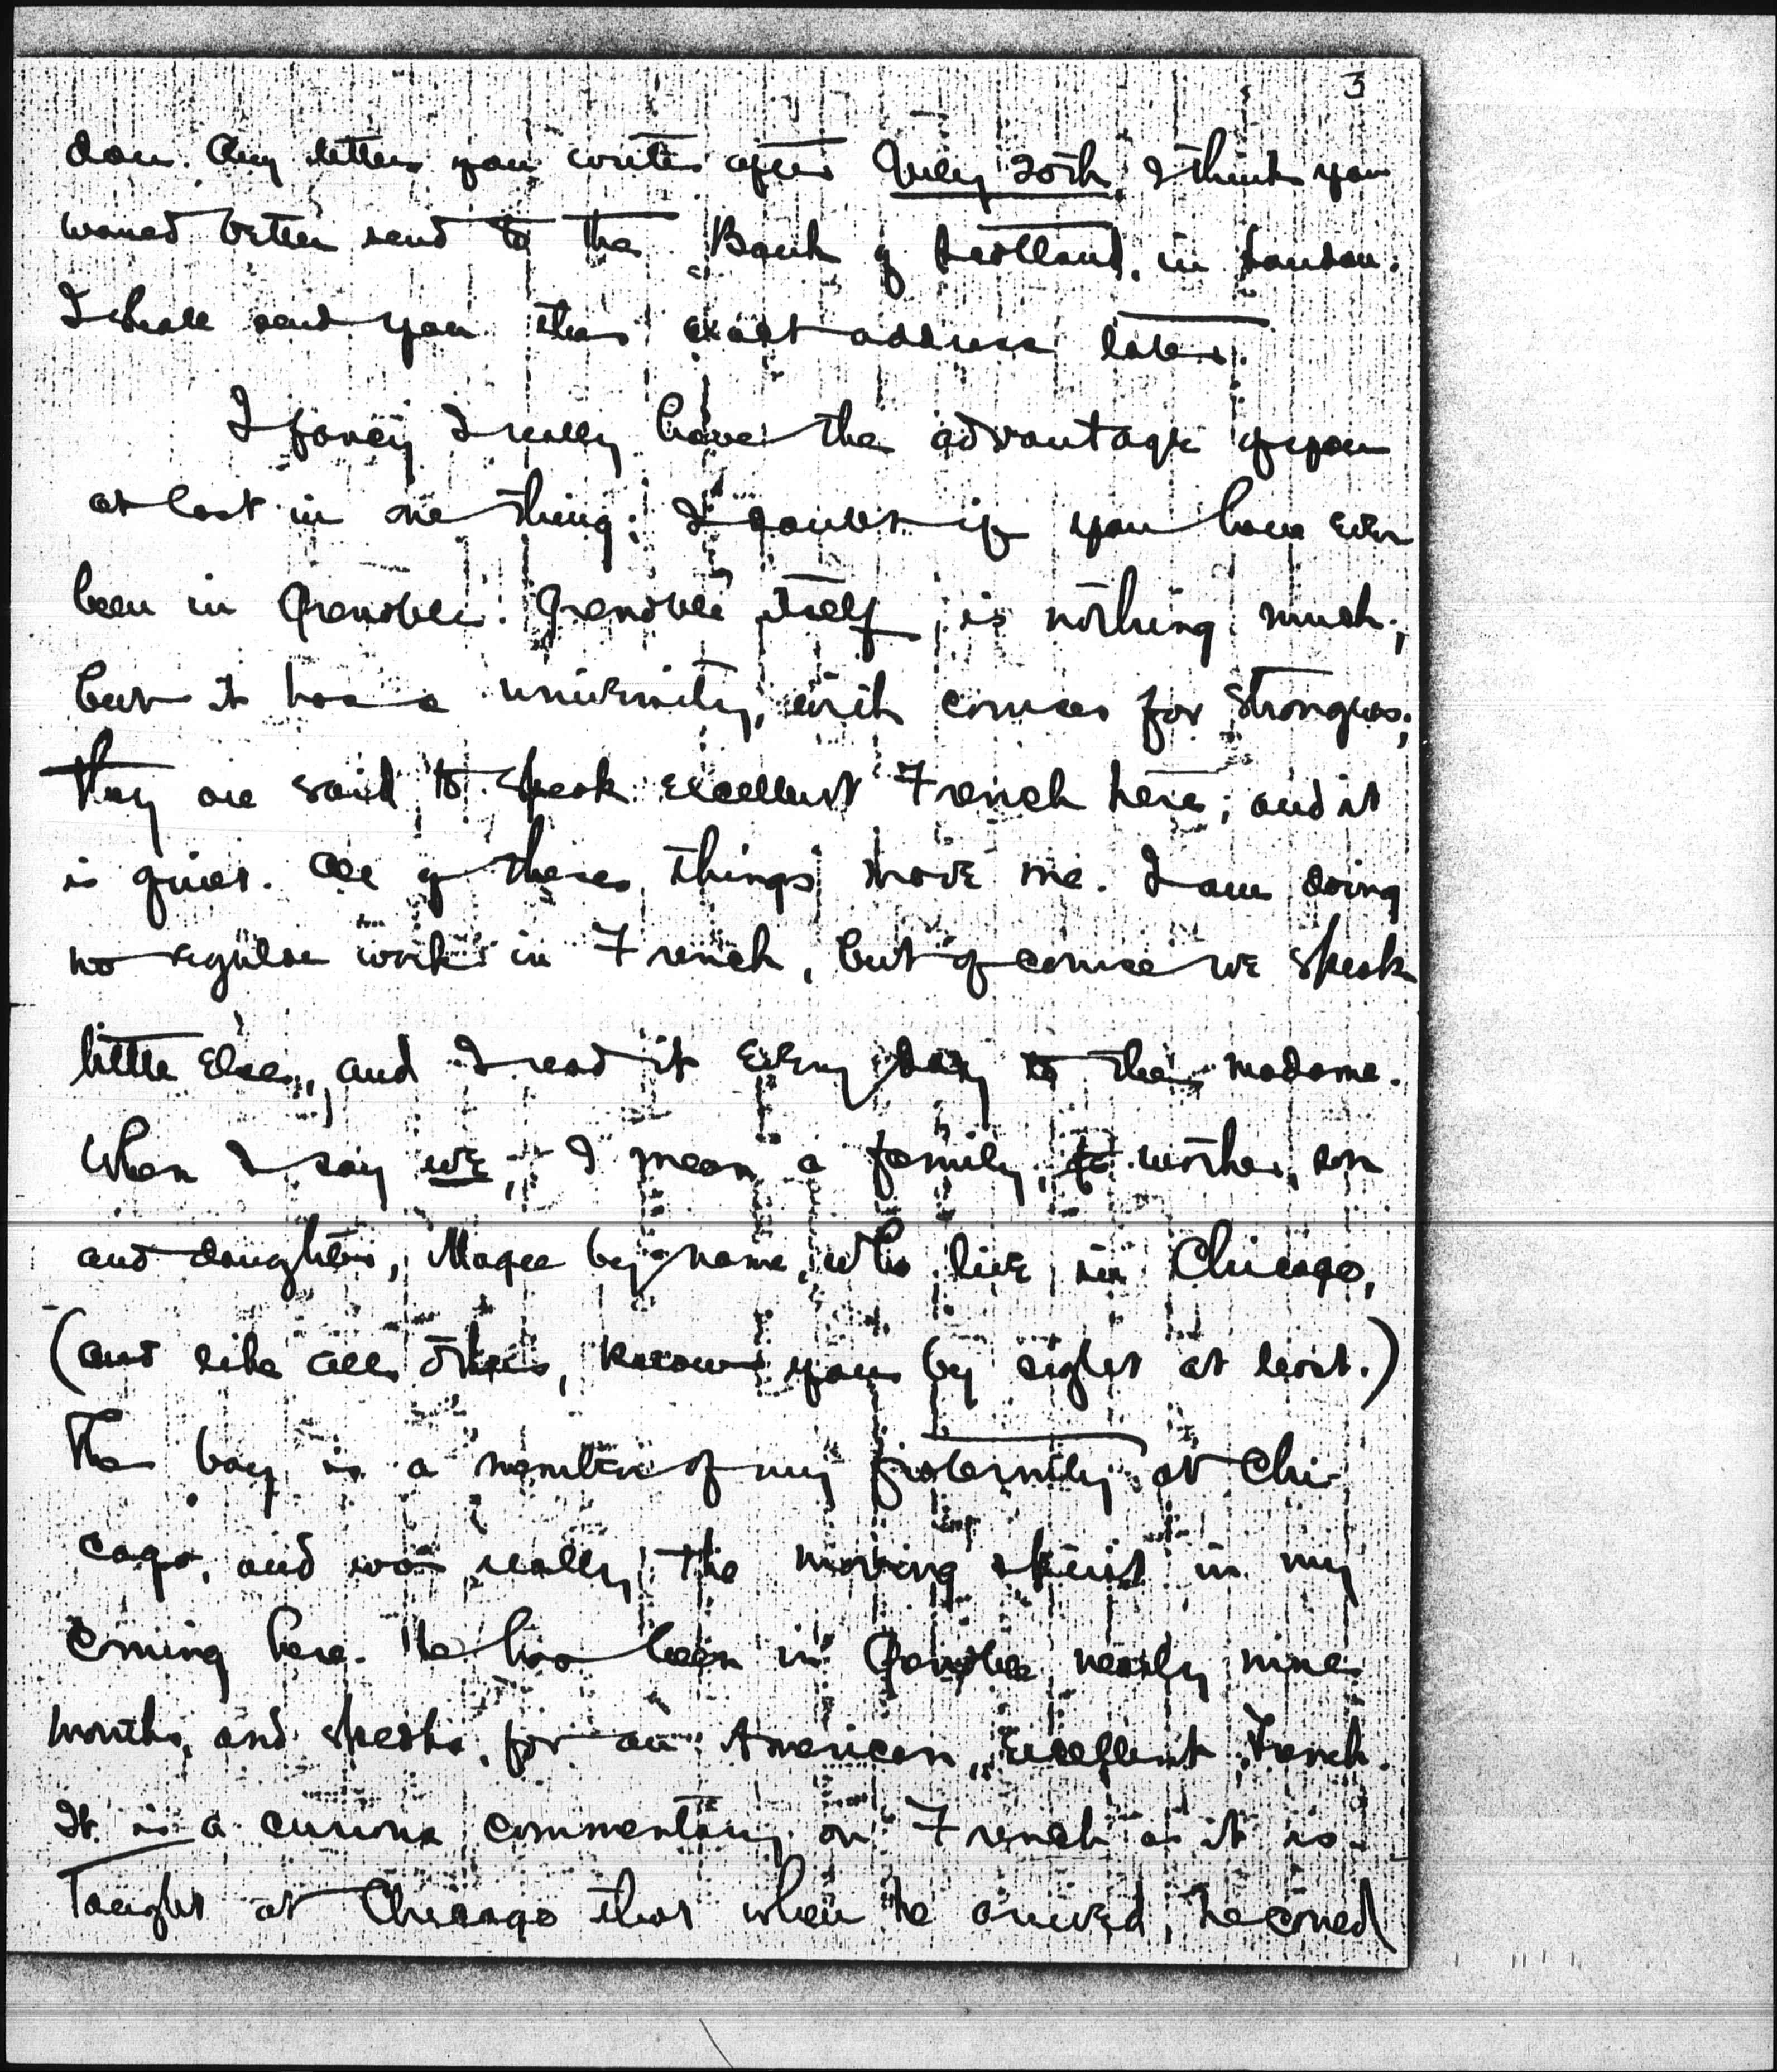 3
don. Any letters you write after July 20th, I think you
would better send to the Bank of Scotland, in London.
I shall send you the exact address later.
I fancy I really have the advantage of you
at last in one thing; I doubt if you have ever
been in Grenoble. Grenoble itself is nothing much;
but it has a university, with courses for strangers;
they are said to speak excellent French here; and it
is quiet. All of these things move me. I am doing
no regular work in French, but of course we speak
little else, and I read it every day to the madame.
When I say we, I mean a family, mother, son
and daughter, Magee by name, who live in Chicago,
(and like all others, know you by sight at least.)
The boy is a member of my fraternity at Chi-
cago, and was really the moving spirit in my
coming here. He has been in Grenoble nearly nine
months, and speaks, for an American, excellent French.
It is a curious commentary on French as it is
taught at Chicago that when he arrived, he could